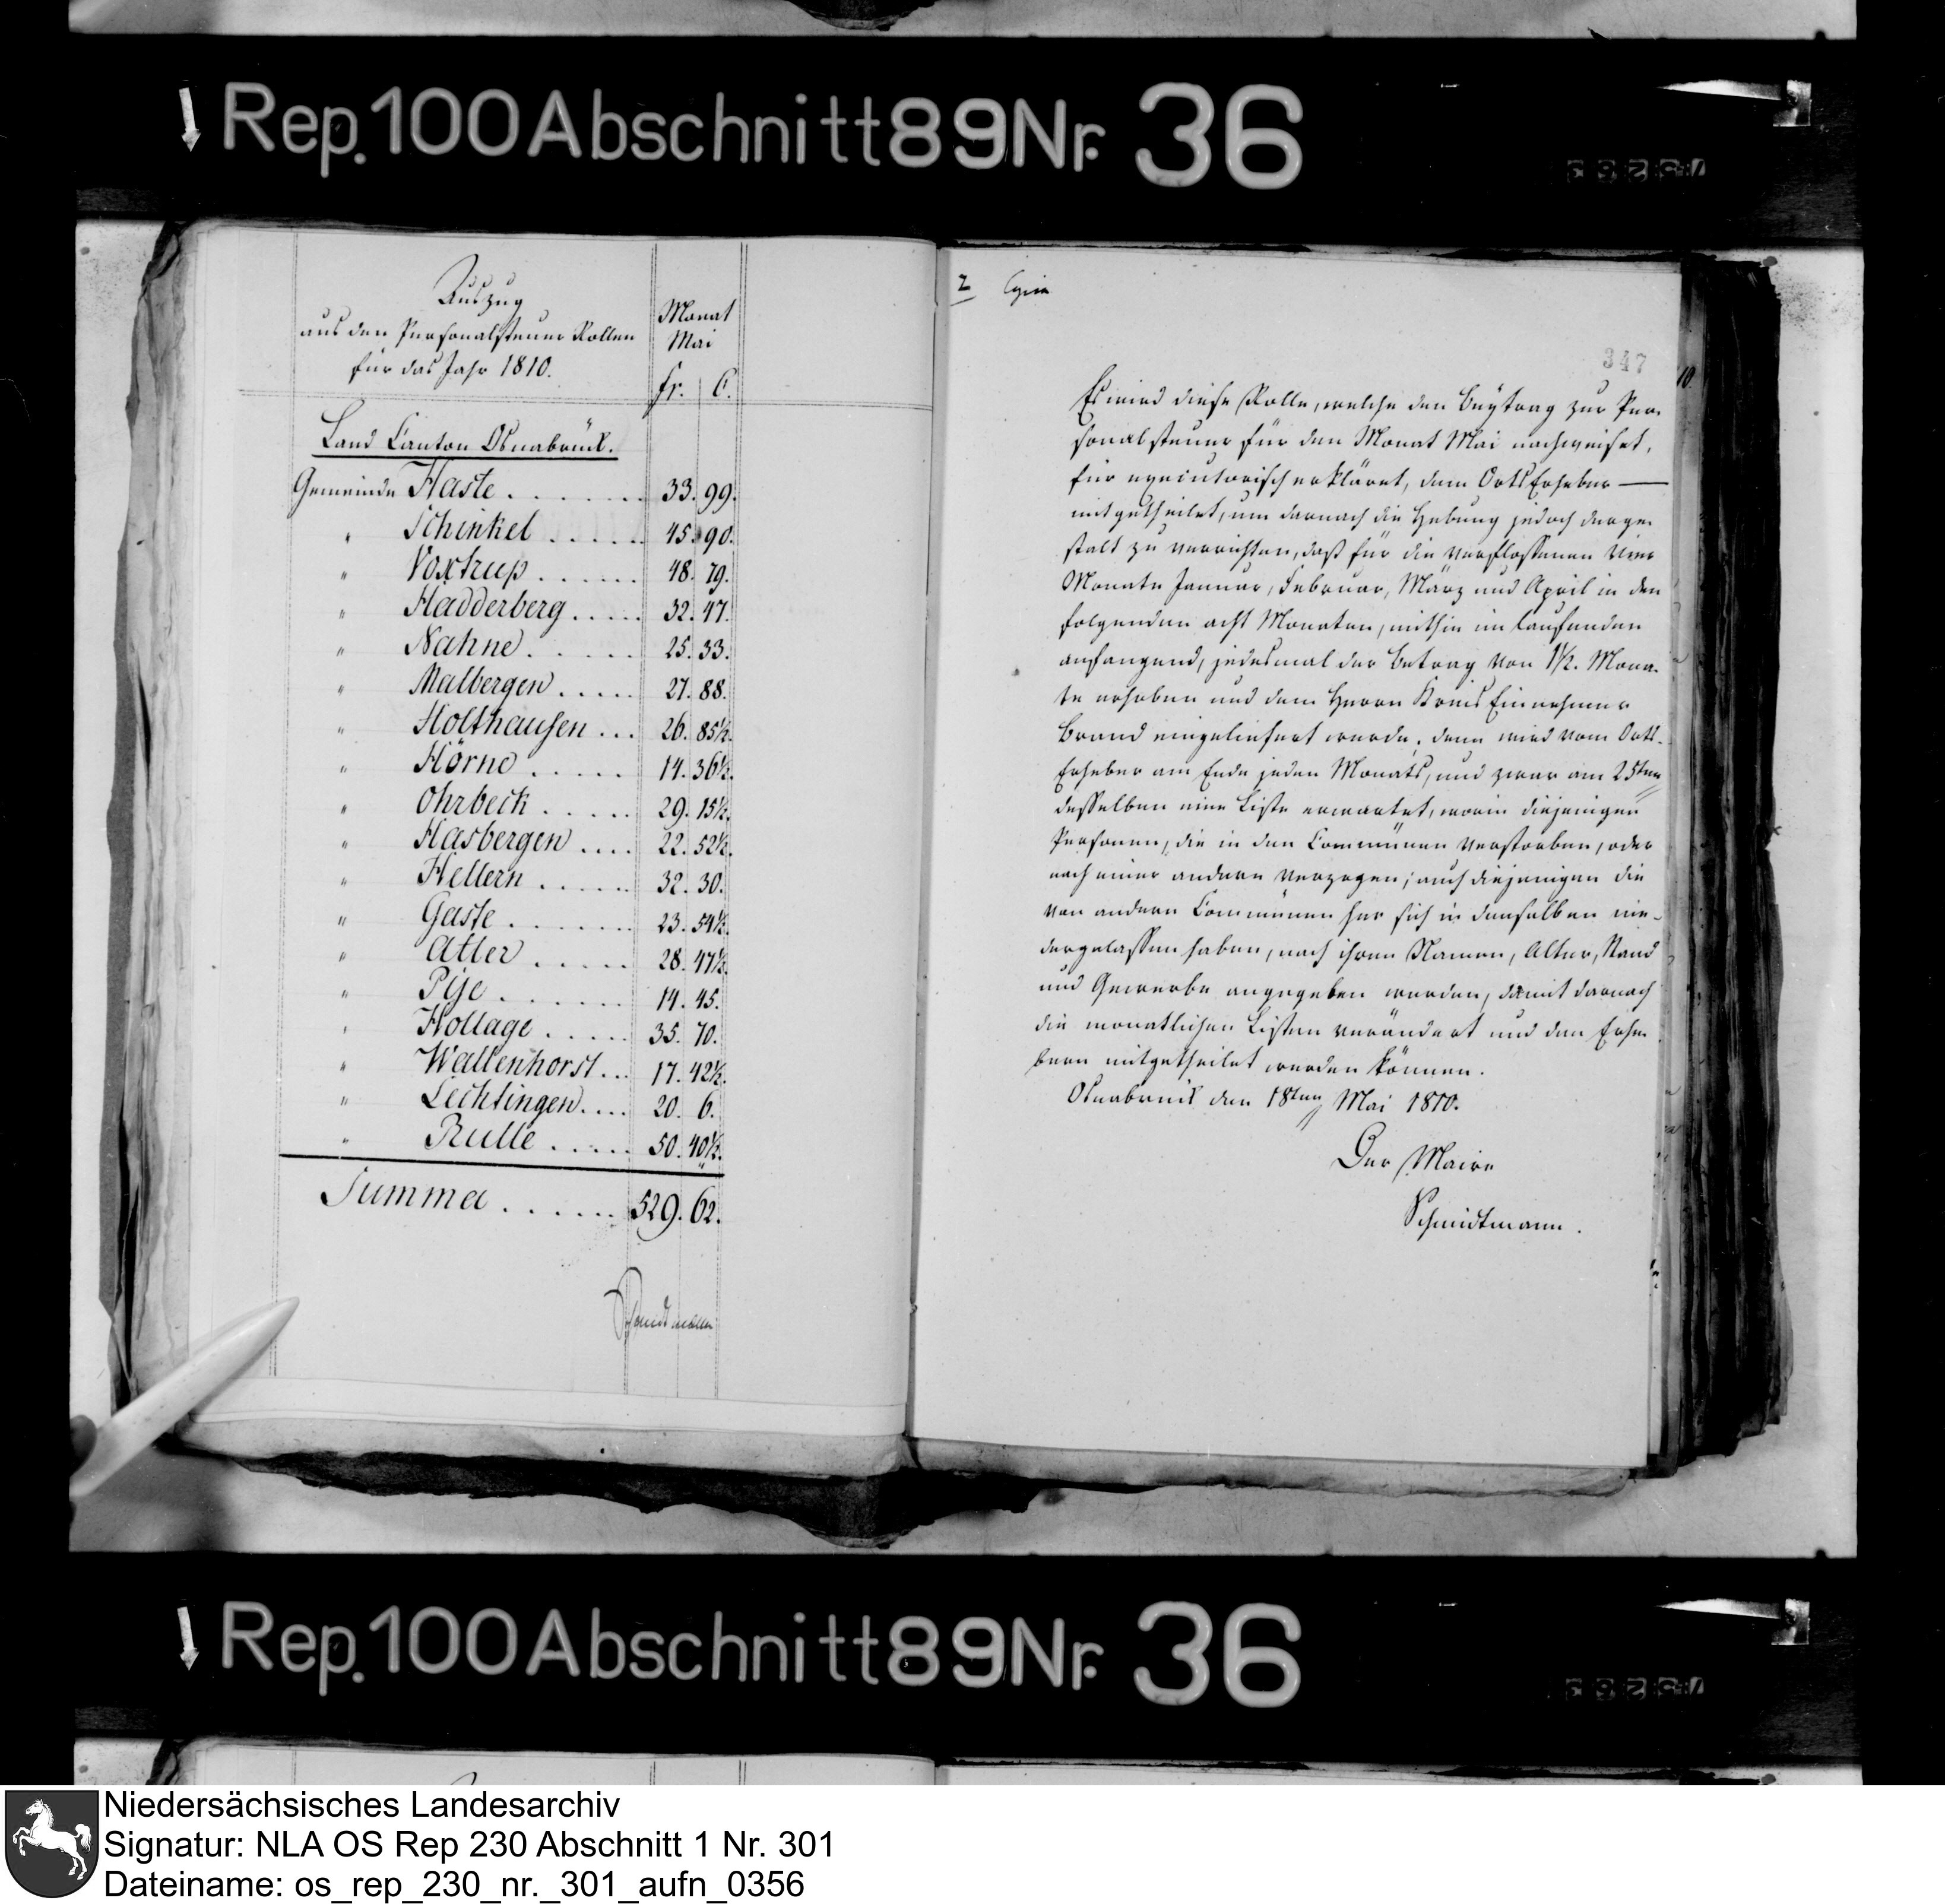 Rep. 100 Abschnitt 89 Nr. 36
Auszug
aus den Personalsteuer Rollen
für das Jahr 1810.
Monat
Mai
fr. C.
Land Canton Osnabrück.
Gemeinde Haste . . . . . . . 33. 99.
" Schinkel . . . . . . 45. 90.
" Voxtrup . . . . . . 48. 79.
" Hadderberg . . . . . 32. 47.
" Nahne . . . . . . 25. 33.
" Malbergen . . . . . 27. 88.
" Holthausen . . . 26. 85½.
" Hörne . . . . . 14. 36½.
" Ohrbeck . . . . . 29. 15½.
" Hasbergen . . . . 22. 52½.
" Hellern . . . . . . 32. 30.
" Gaste . . . . . . . 23. 54½.
" Atter . . . . . 28. 47½.
" Pije . . . . . . . 14. 45.
" Hollage . . . . . 35. 70.
" Wallenhorst . . . 17. 42½.
" Lechtingen . . . . 20. 6.
" Rulle . . . . . 50. 40½.
Summa . . . . . . 529. 62.
Schmidtmann
2 Copia
347
10.
Es wird diese Rolle, welche den Beytrag zur Per-
sonalsteuer für den Monat Mai nachweiset,
für executorisch erkläret, dem Orts Erheber —
mitgetheilet, um darnach die Hebung jedoch derge-
stalt zu verrichten, daß für die verflossenen vier
Monate Januar, Februar, März und April in den
folgenden acht Monaten, mithin im laufenden
anfangend, jedesmal der Betrag von 1½. Mona-
te erhoben und dem Herrn Kreis Einnehmer
Brand eingeliefert werde; denn wird vom Orts-
Erheber am Ende jeden Monats, und zwar am 25ten
desselben eine Liste erwartet, worin diejenigen
Personen, die in den Communen verstorben, oder
nach einer andern verzogen; auch diejenigen die
von andern Communen her sich in denselben nie-
dergelassen haben, nach ihren Namen, Alter, Stand
und Gewerbe angegeben werden, damit darnach
die monatlichen Listen verändert und den Erhe-
bern mitgetheilet werden können.
Osnabrück den 18ten Mai 1810.
Der Maire
Schmidtmann.
Rep. 100 Abschnitt 89 Nr. 36
Niedersächsisches Landesarchiv
Signatur: NLA OS Rep 230 Abschnitt 1 Nr. 301
Dateiname: os_rep_230_nr._301_aufn_0356